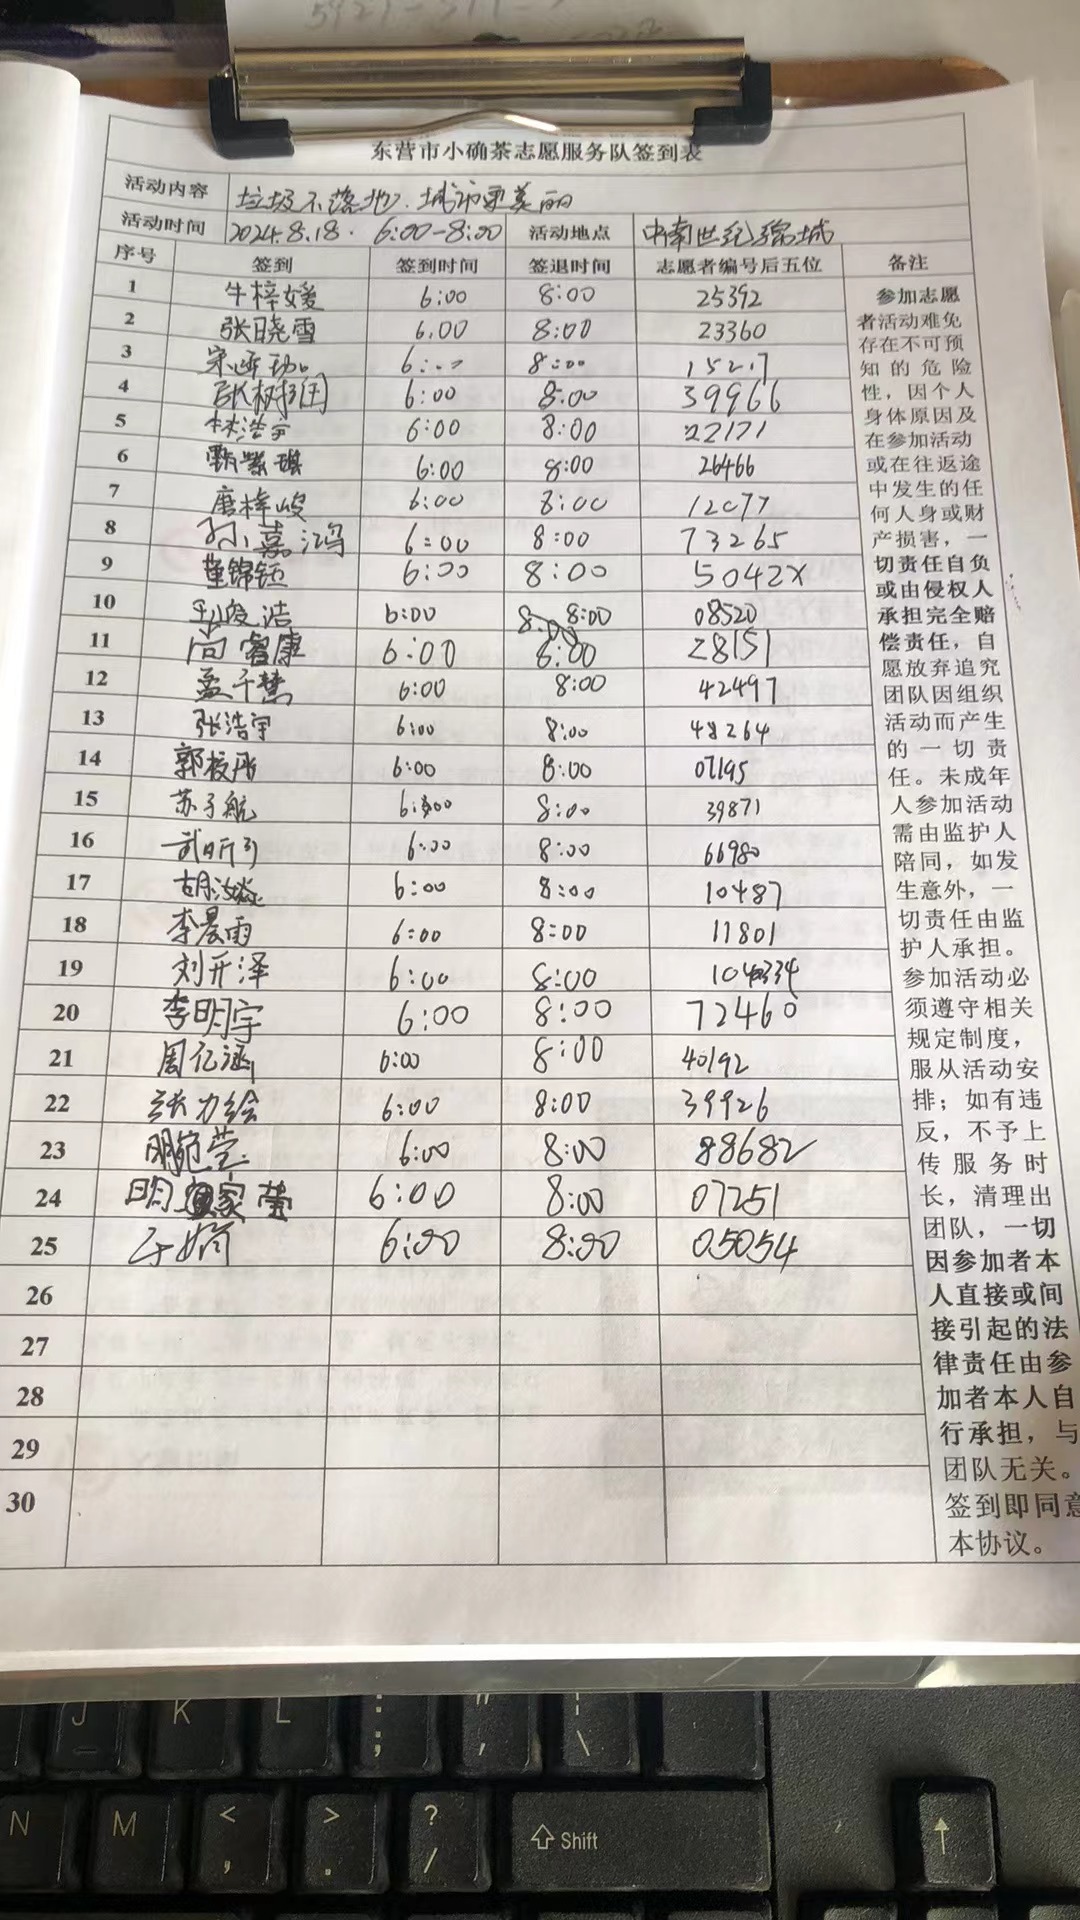 东营市小确茶志愿服务队签到表
活动内容 垃圾不落地.城市更美丽
活动时间 2024.8.18. 6:00-8:00 活动地点 中南世纪锦城
序号 签到 签到时间 签退时间 志愿者编号后五位 备注
1 牛梓媛 6:00 8:00 25392
2 张晓雪 6:00 8:00 23360
3 8:00 15217
4 张树润 6:00 8:00 39966
5 林浩宇 6:00 8:00 22171
6 6:00 8:00 26466
7 唐梓峻 6:00 8:00 12077
8 孙嘉鸿 6:00 8:00 73265
9 董锦钰 6:00 8:00 5042X
10 浩 6:00 8:00 08520
11 向睿康 6:00 8:00 28151
12 孟千慧 6:00 8:00 42497
13 张浩宇 6:00 8:00 48264
14 郭校彤 6:00 8:00 07195
15 苏子航 6:00 8:00 39871
16 武昕 6:00 8:00 66980
17 胡 6:00 8:00 10487
18 李晨雨 6:00 8:00 11801
19 刘开泽 6:00 8:00
20 李明宇 6:00 8:00 72460
21 周亿涵 6:00 8:00 40192
22 张力绘 6:00 8:00 39926
23 明宛莹 6:00 8:00 88682
24 明家莹 6:00 8:00 07251
25 于娟 6:00 8:00 05054
26
27
28
29
30
参加志愿
者活动难免
存在不可预
知的危险
性，因个人
身体原因及
在参加活动
或在往返途
中发生的任
何人身或财
产损害，一
切责任自负
或由侵权人
承担完全赔
偿责任，自
愿放弃追究
团队因组织
活动而产生
的一切责
任。未成年
人参加活动
需由监护人
陪同，如发
生意外，一
切责任由监
护人承担。
参加活动必
须遵守相关
规定制度，
服从活动安
排；如有违
反，不予上
传服务时
长，清理出
团队，一切
因参加者本
人直接或间
接引起的法
律责任由参
加者本人自
行承担，与
团队无关。
签到即同意
本协议。
J K L : ; " ' | \
N M < , > . ? / ⇧ Shift ↑